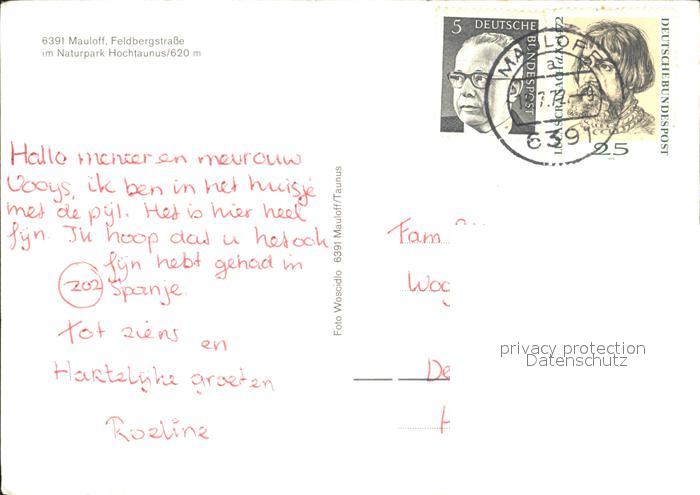 6391 Mauloff, Feldbergstraße
im Naturpark Hochtaunus/620 m
5 DEUTSCHE BUNDESPOST
DEUTSCHE BUNDESPOST
25
MAULOFF
6391
Hallo meneer en mevrouw
Vooys, ik ben in het huisje
met de pijl. Het is hier heel
fijn. Ik hoop dat u het ook
fijn hebt gehad in
202 Spanje.
Tot ziens
en
Hartelijke groeten
Roeline
Foto Woscidlo 6391 Mauloff/Taunus
Fam
Wog
De
H
privacy protection
Datenschutz